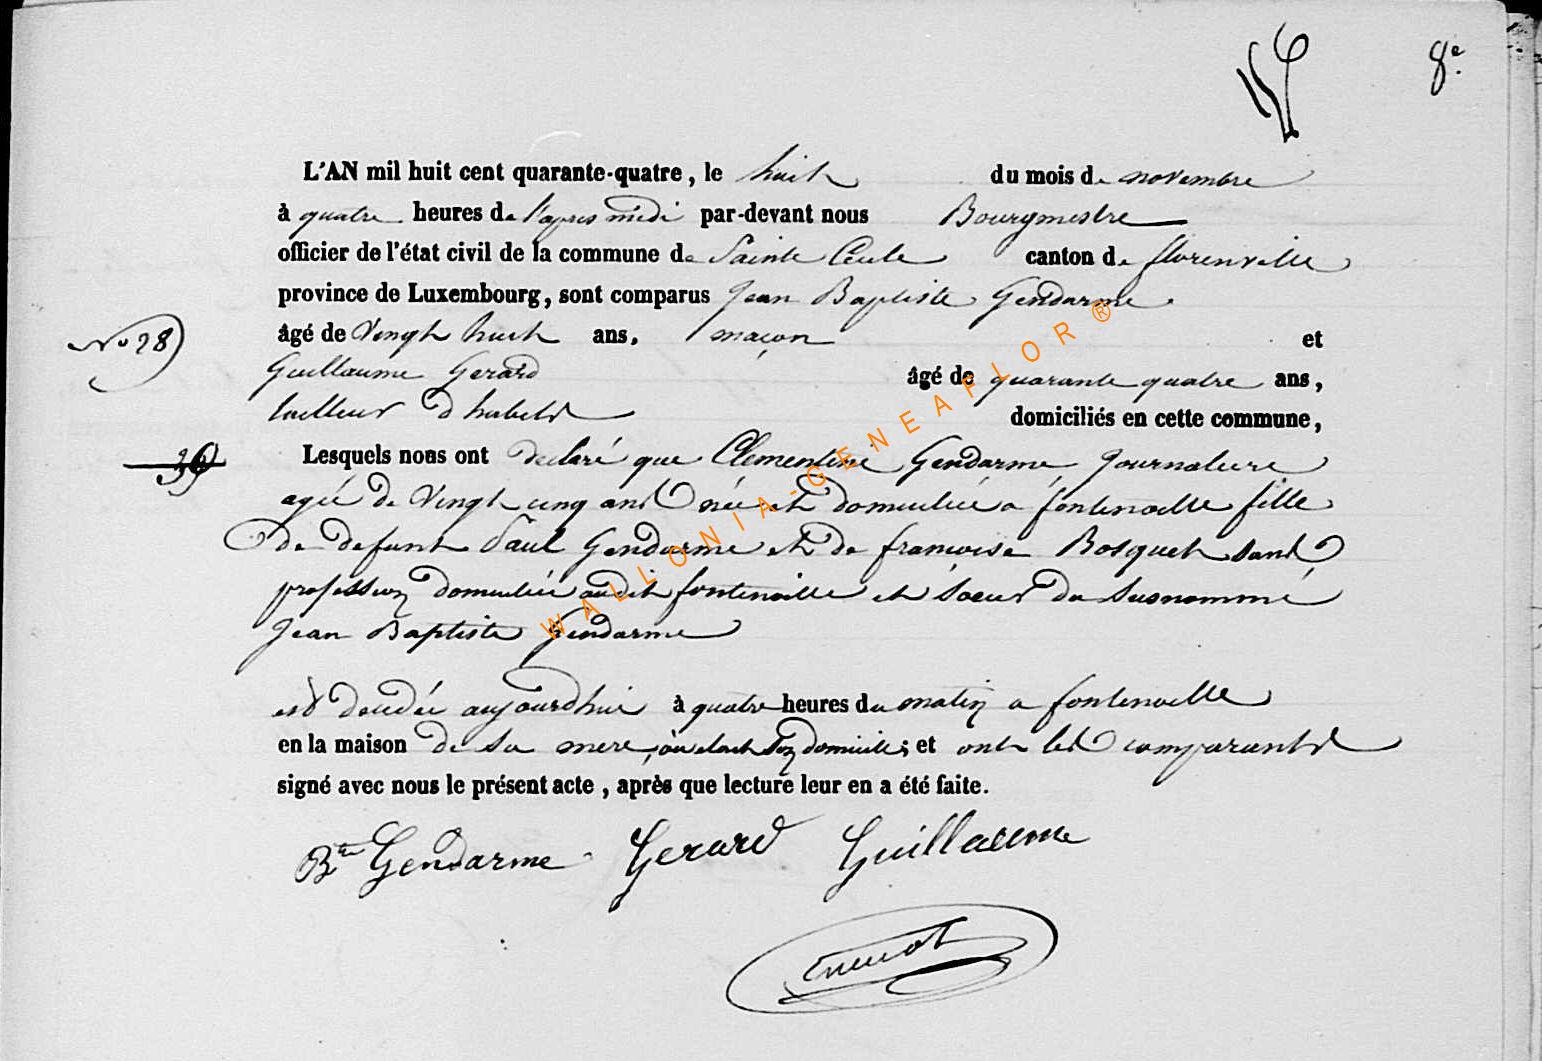 8e.
L'AN mil huit cent quarante-quatre, le huit du mois de novembre
à quatre heures de l'apres midi par-devant nous Bourgmestre
officier de l'état civil de la commune de Sainte Cécile canton de florenville
province de Luxembourg, sont comparus Jean Baptiste Gendarme
No 28
âgé de Vingt huit ans, maçon et
Guillaume Gerard âgé de quarante quatre ans,
tailleur d'habits domiciliés en cette commune,
39
Lesquels nous ont declaré que Clementine Gendarme journaliere
agée de Vingt cinq ans née et domiciliée a fontenoille fille
de defunt Paul Gendarme et de françoise Bosquet sans
profession domiciliée audit fontenoille et soeur du susnommé
Jean Baptiste Gendarme
est decedée aujourdhui à quatre heures du matin a fontenoille
en la maison de sa mere, ou etait son domicile; et ont les comparants
signé avec nous le présent acte, après que lecture leur en a été faite.
Bte Gendarme Gerard Guillaume
WALLONIA-GENEAFLOR®